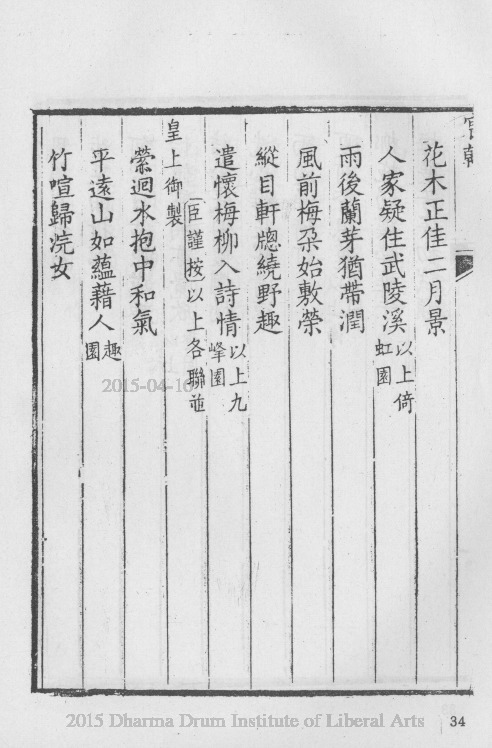 花木正佳二月景
人家疑住武陵溪以上倚虹園
雨後蘭芽猶帶潤
風前梅朶始敷榮
縱目軒牕繞野趣
遣懷梅柳入詩情以上九峰園
臣謹按以上各聯並
皇上御製
縈迴水抱中和氣
平遠山如蘊藉人趣園
竹喧歸浣女
2015-04-10
2015 Dharma Drum Institute of Liberal Arts
34